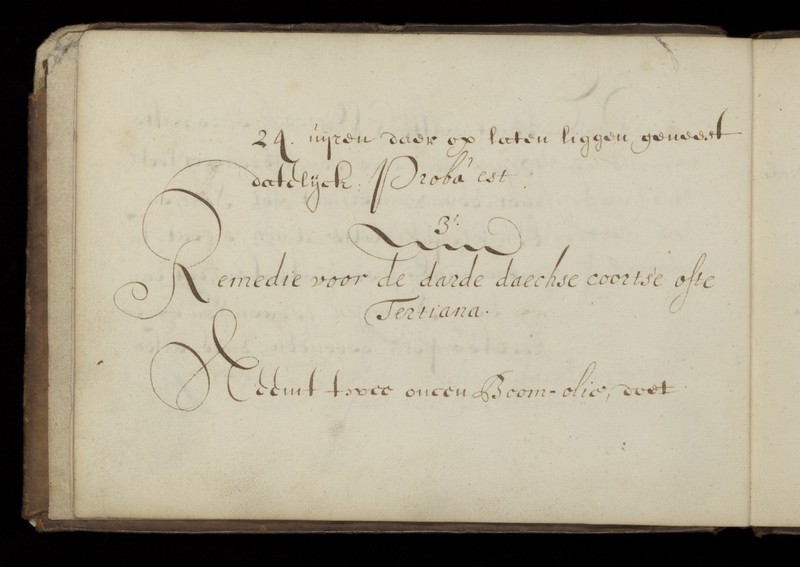 24. uijren daer op laten liggen geneest
datelijck: Proba est.
3.
Remedie voor de darde daechse coortse ofte
Tertiana.
Neemt twee oncen Boom-olie, doet